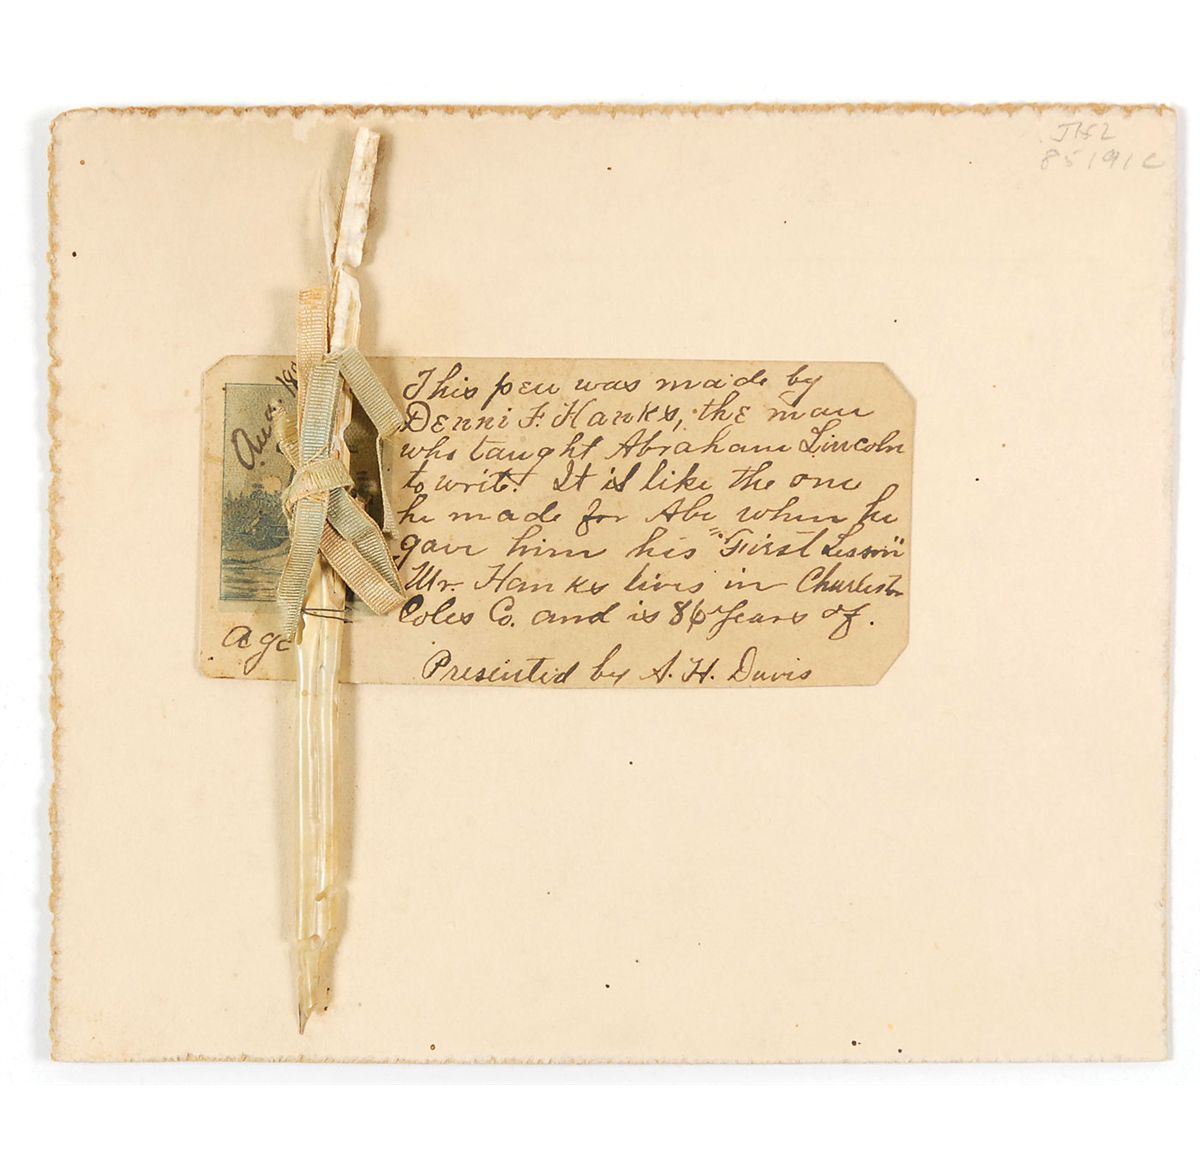 85191c
Aug. 18
This pen was made by
Denni F. Hanks, the man
who taught Abraham Lincoln
to write. It is like the one
he made for Abe when he
gave him his "First Lesson"
Mr. Hanks lives in Charlest
Coles Co. and is 86 years of.
age
Presented by A. H. Davis